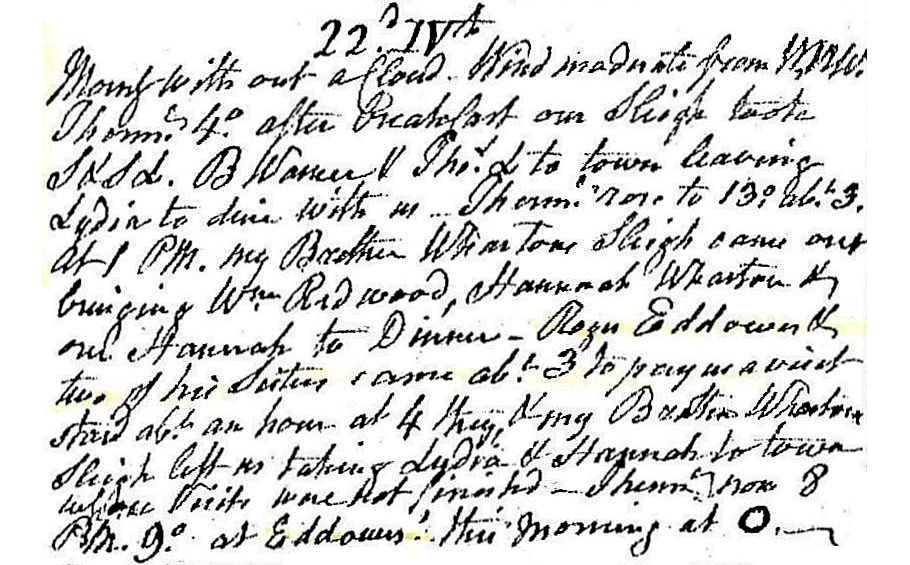 22d. IVth
Morng with out a Cloud. Wind moderate from WNW.
Thermr. 4° after Breakfast our Sleigh took
S & S L. B Warner & Thos. L to town leaving
Lydia to dine with us — Thermr. rose to 13° abt. 3.
At 1 PM. my Brother Whartons Sleigh came out
bringing Wm Redwood, Hannah Wharton &
our Hannah to Dinner — Roger Eddowes &
two of his Sisters came abt. 3 to pay us a visit
staid abt. an hour at 4 they, & my Brother Whartons
Sleigh left us taking Lydia & Hannah to town
Visits were not finished — Thermr. now 8
PM. 9° at Eddowes'. this morning at 0.